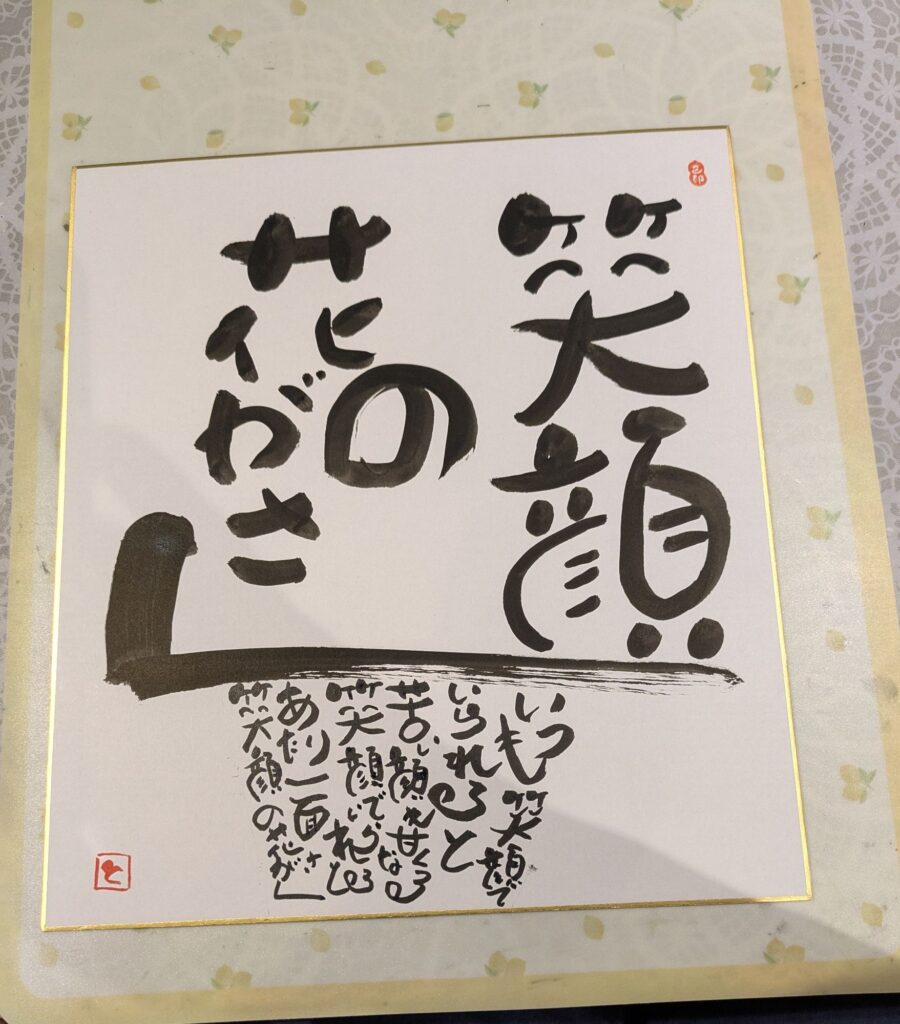 笑顔
の
花がさく
いつも笑顔で
いられると
苦い顔も甘くなる
笑顔でいられると
あたり一面
笑顔の花がさく
と